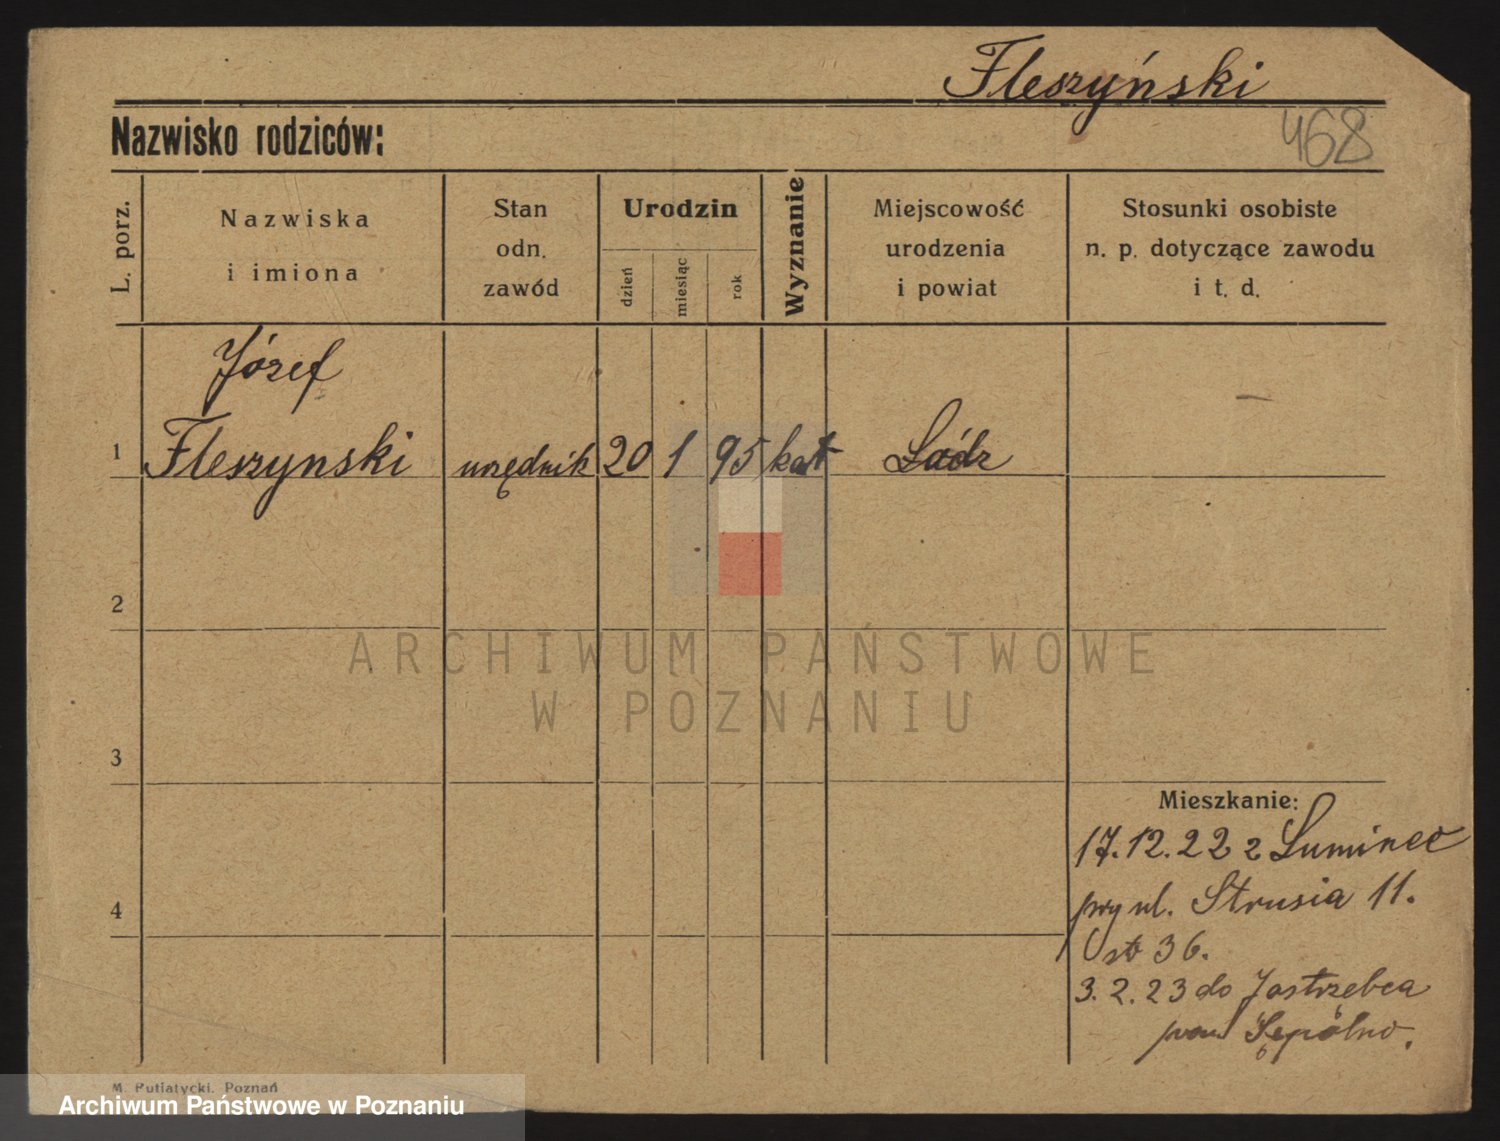 Fleszyński
468
Nazwisko rodziców:
L. porz.
Nazwiska
i imiona
Stan
odn.
zawód
Urodzin
dzień
miesiąc
rok
Wyznanie
Miejscowość
urodzenia
i powiat
Stosunki osobiste
n. p. dotyczące zawodu
i t. d.
Józef
1 Fleszynski urzędnik 20 1 95 kat Łódz —
2
ARCHIWUM PAŃSTWOWE
W POZNANIU
3
Mieszkanie:
17.12.22 z Luminec
przy ul. Strusia 11.
4
st 36.
3.2.23 do Jastrzebca
pow Sępólno.
M. Putiatycki, Poznań
Archiwum Państwowe w Poznaniu